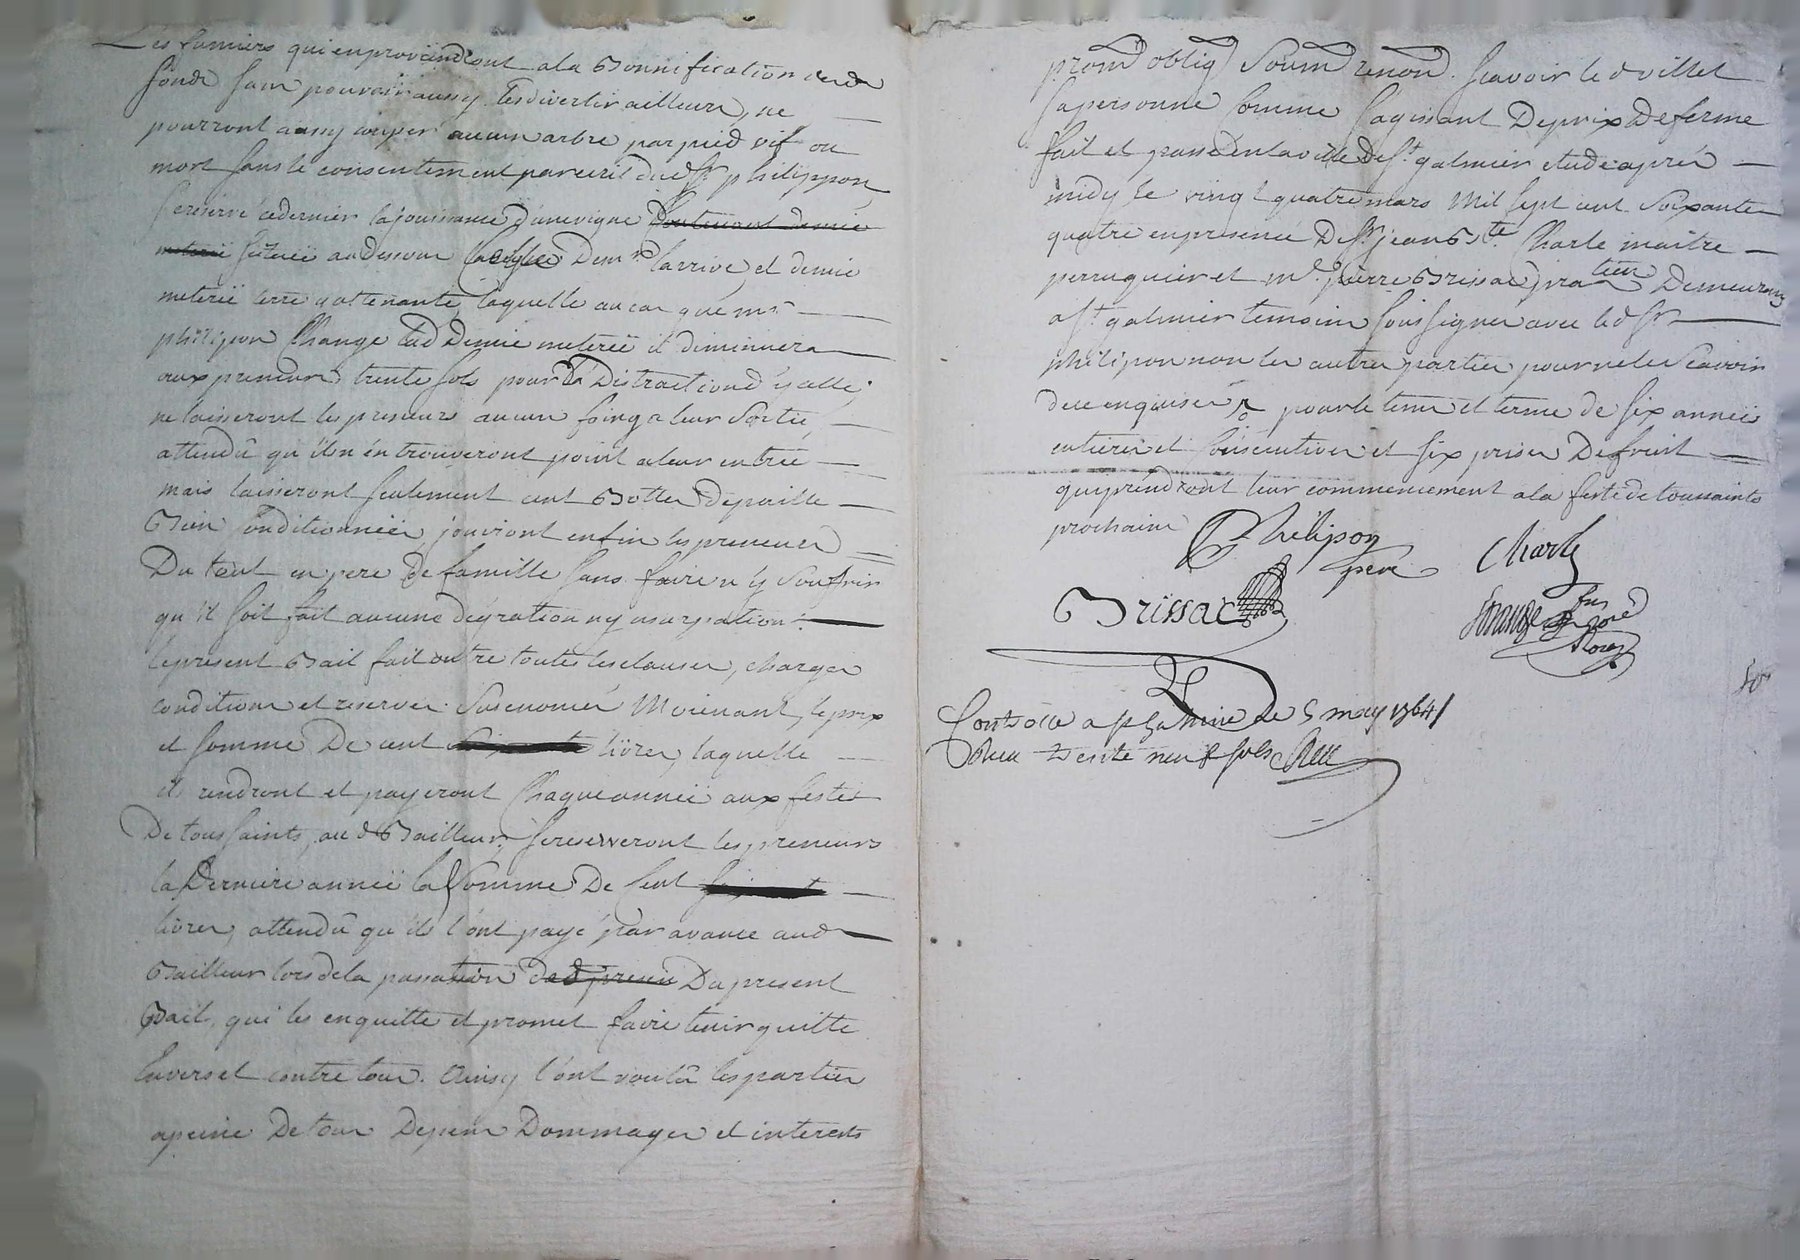 Les fumiers qui en proviendront a la Bonnification desd
fonds sans pouvoir aussy les divertir ailleurs, ne
pourront aussy couper aucun arbre par pied vif ou
mort sans le consentement par ecrit dud Sr philippon
se reserve ce dernier la jouissance d'une vigne
scituée au dessous Demr larrive et demie
meterië terre y attenante, laquelle au cas que mr
philipon Change lad Demie meterëe il diminuera
aux preneurs trente sols pour la Distraction d'ycelle
ne laisseront les preneurs aucun foing a leur Sortie,
attendû qu'ils n'en trouveront point a leur entrée
mais laisseront seulement cent Bottes De paille
Bien Conditionnëe, jouiront enfin les preneurs
Du tout en pere De famille sans faire n'y Souffrir
qu'il soit fait aucune dégration ny usurpation
le present Bail fait outre toutes les clauses, charges
conditions et reserves Susenoncés Moienant, le prix
et somme De cent livres, laquelle
ils rendront et payeront Chaque année aux festes
De tous saints, au d Bailleur, se reserveront les preneurs
la Derniere année la Somme De Cent
livres, attendû qu'ils l'ont payé par avance aud
Bailleur lors de la passation Du present
Bail, qui les en quitte et promet faire tenir quitte
Envers et contre tous. Ainsy l'ont voulû les parties
a peine De tous Depens Dommages et interests
promd obligd Soumd renond. Scavoir le d villet
sa personne Comme s'agissant De prix De ferme
fait et passé en la ville De St. galmier etude aprés
midy le vingt quatre mars Mil sept cent Soixante
quatre en presence De Sr jean Bte. Charle maitre
perruquier et me. pierre Brissac praticien Demeurans
a St. galmier temoins sous signes avec led Sr
philipon non les autres parties pour ne le Scavoir
de ce enquises pour le tems et terme de six années
entieres et Consecutives et six prises De fruit
qui prendront leur commencement a la feste de toussaints
prochaine Philipon
pere Charle
Brissac
Contrôlé a St galmier le 5 may 1764
Recu trente neuf sols